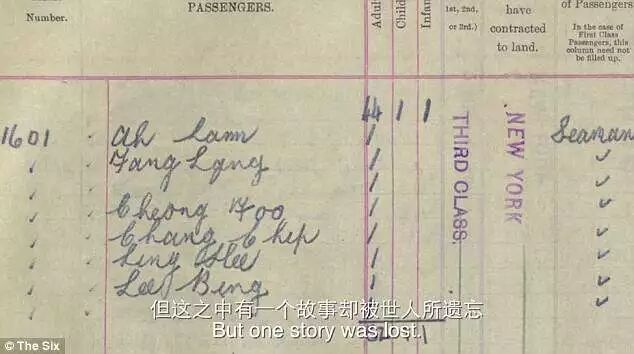 Number.
PASSENGERS.
Adul
Child
Infan
1st, 2nd,
or 3rd.)
have
contracted
to land.
of Passengers
In the case of
First Class
Passengers, this
column need not
be filled up.
44 1 1
THIRD CLASS.
NEW YORK
1601 Ah Lam 1 Seaman
Fang Lang 1
Cheong Foo 1
Chang Chip 1
Ling Hee 1
Lee Bing 1
但这之中有一个故事却被世人所遗忘
But one story was lost.
© The Six